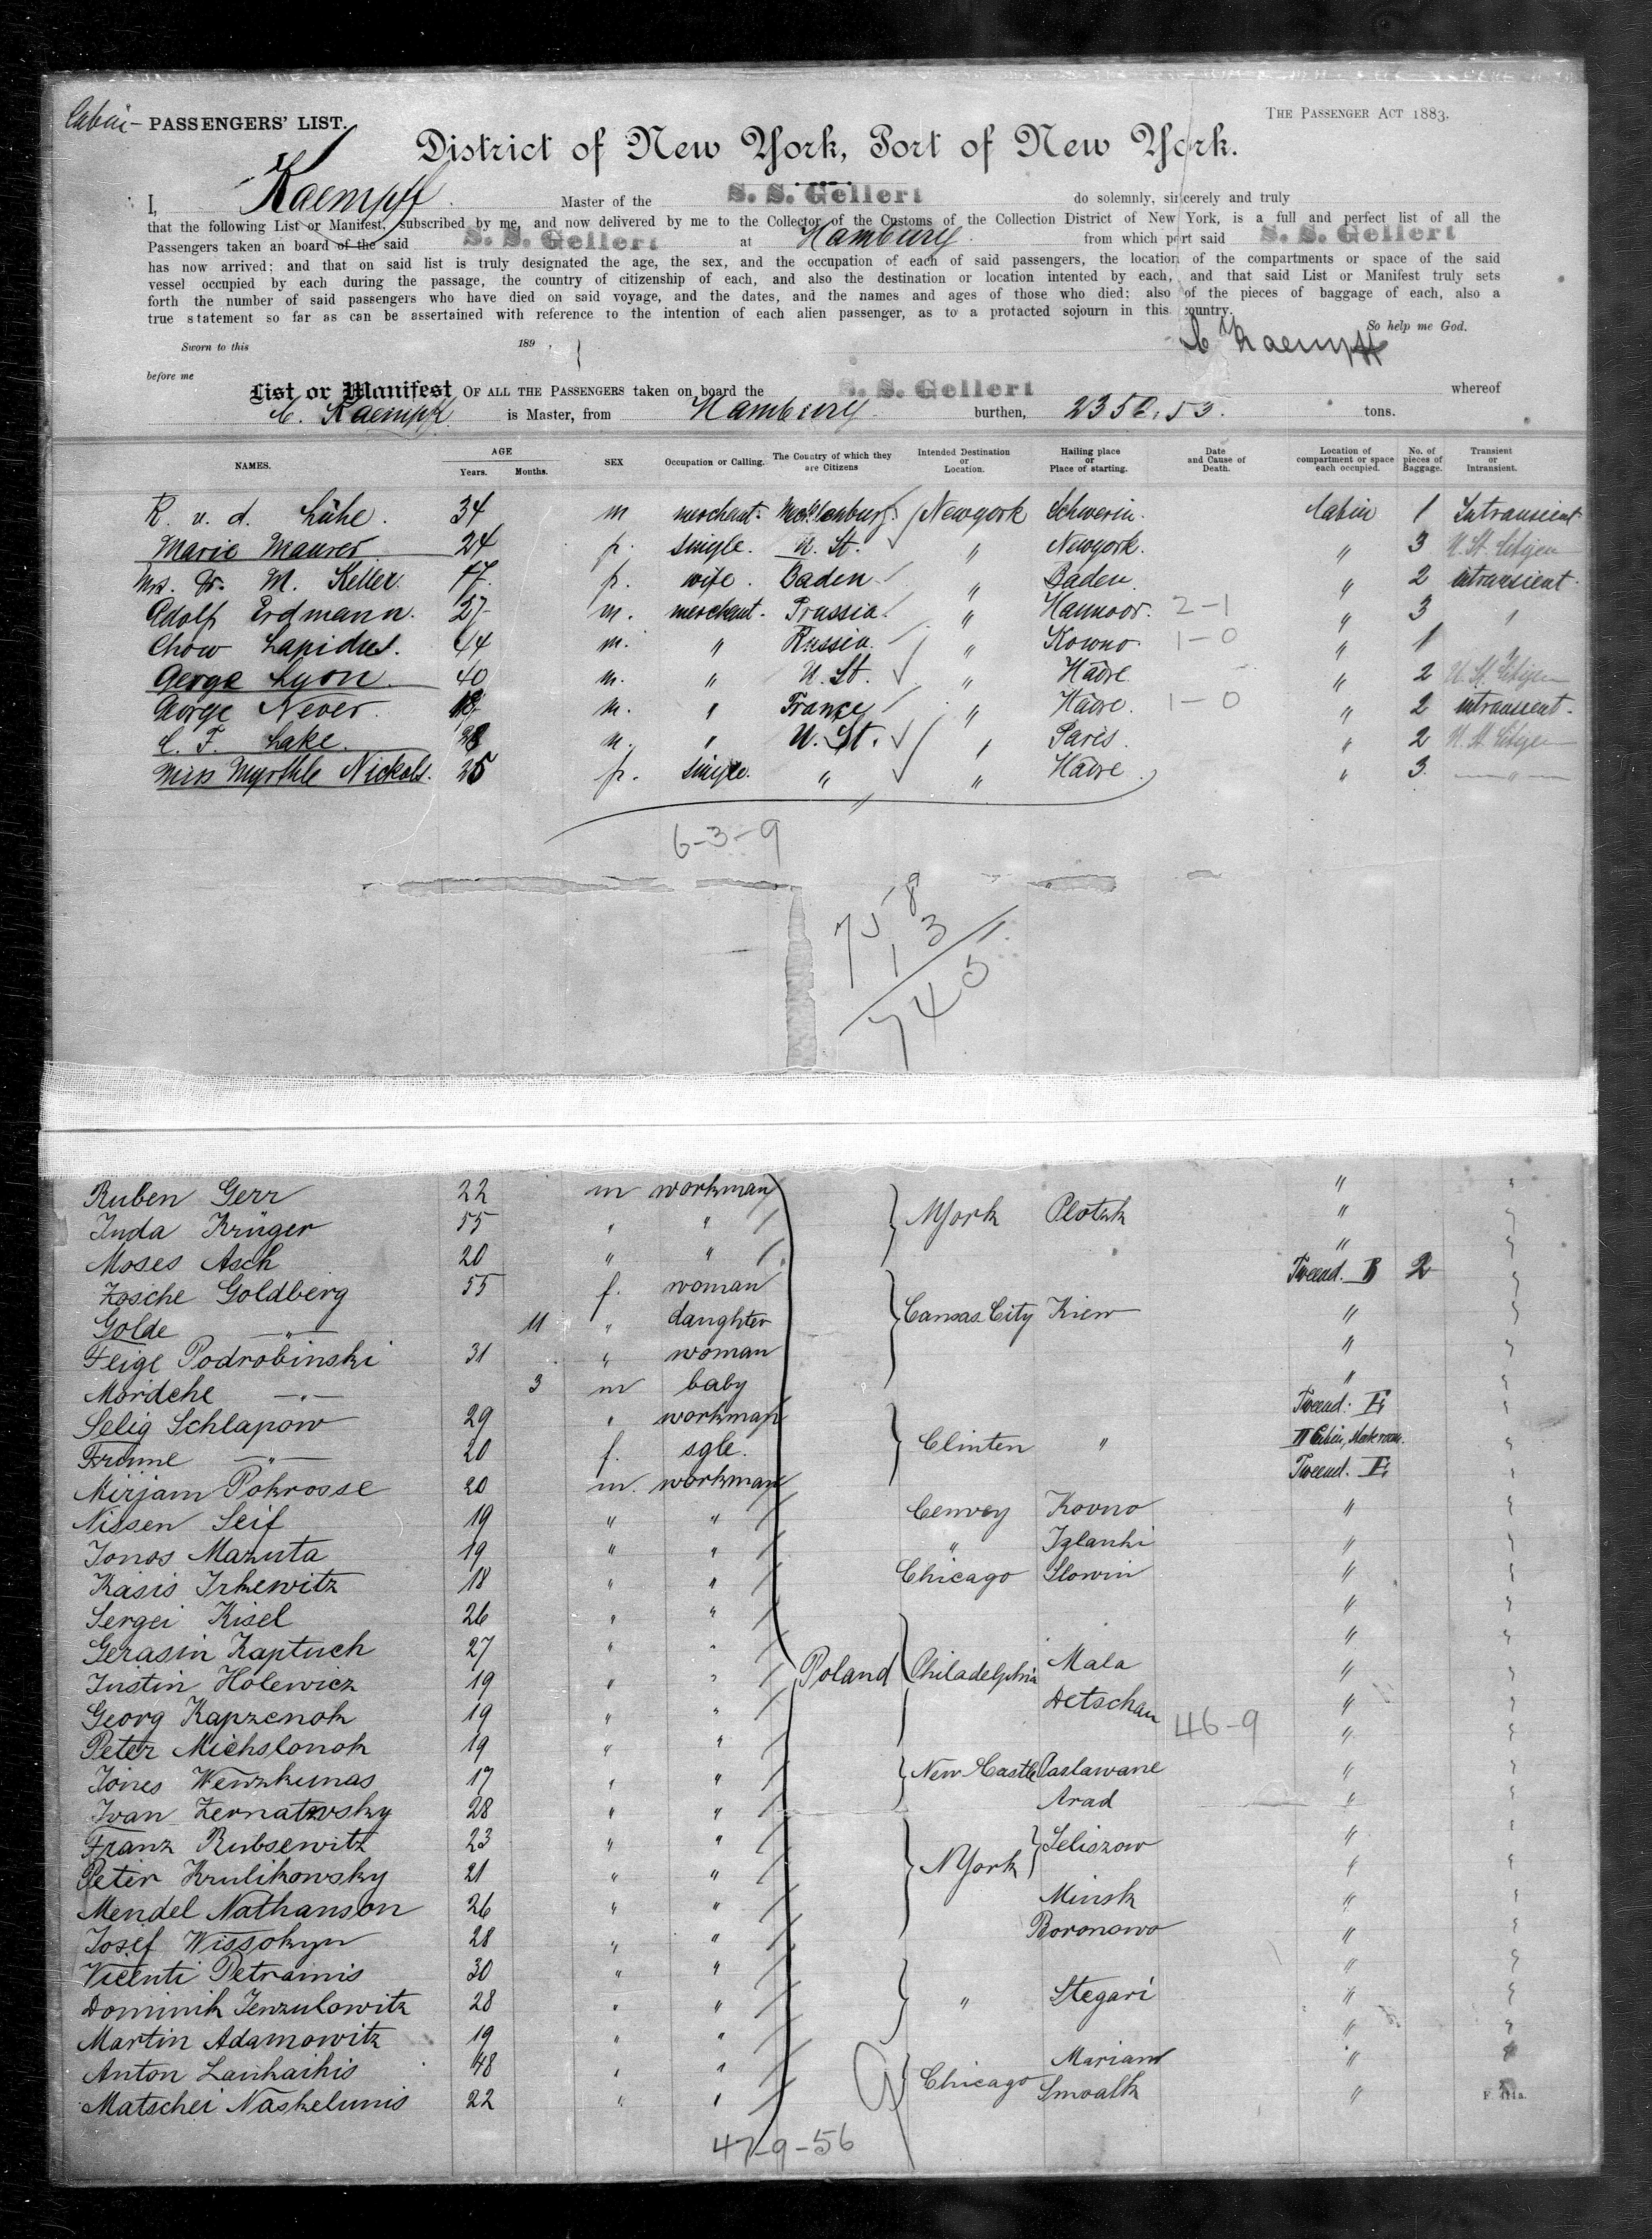 Cabin- PASSENGERS' LIST.
THE PASSENGER ACT 1883.
District of New York, Port of New York.
I, Kaempff Master of the S. S. Gellert do solemnly, sincerely and truly
that the following List or Manifest, subscribed by me, and now delivered by me to the Collector of the Customs of the Collection District of New York, is a full and perfect list of all the
Passengers taken an board of the said S. S. Gellert at Hamburg from which port said S. S. Gellert
has now arrived; and that on said list is truly designated the age, the sex, and the occupation of each of said passengers, the location of the compartments or space of the said
vessel occupied by each during the passage, the country of citizenship of each, and also the destination or location intented by each, and that said List or Manifest truly sets
forth the number of said passengers who have died on said voyage, and the dates, and the names and ages of those who died; also of the pieces of baggage of each, also a
true statement so far as can be assertained with reference to the intention of each alien passenger, as to a protacted sojourn in this country.
So help me God.
Sworn to this 189 ,
C Kaempff
before me
List or Manifest OF ALL THE PASSENGERS taken on board the S. S. Gellert whereof
C. Kaempff is Master, from Hamburg burthen, 2352,53. tons.
NAMES. AGE Years. Months. SEX Occupation or Calling. The Country of which they are Citizens Intended Destination or Location. Hailing place or Place of starting. Date and Cause of Death. Location of compartment or space each occupied. No. of pieces of Baggage. Transient or Intransient.
R. v. d. Lühe. 34 m merchant. Mecklenburg. Newyork Schwerin. Cabin 1 Intransient
Marie Maurer 24 f. single. U. St. " Newyork. " 3 U. St. Citizen
Mrs. Dr. M. Keller. 17. f. wife. Baden " Baden. " 2 intransient.
Adolf Erdmann. 27 m. merchant. Prussia. " Hannover. 2-1 " 3 "
Chow Lapidus. 44 m. " Russia. " Kowno. 1-0 " 1 "
George Lyon. 40 m. " U. St. " Hâvre " 2 U. St. Citizen
George Never. 18 m. " France " Hâvre. 1-0 " 2 intransient.
C. F. Lake. 28 m. " U. St. " Paris. " 2 U. St. Citizen
Miss Myrthle Nickols. 25 f. single. " " Hâvre " 3 — " —
6-3-9
758
13
745
Ruben Gerr 22 m workman NYork Plotzk " "
Juda Krüger 55 " " " "
Moses Asch 20 " " " "
Zosche Goldberg 55 f. woman Tweend. B 2 "
Golde — " — 11 " daughter Cansas City Kiew " "
Feige Podrobinski 31 " woman " "
Mordche — " — 3 m baby " "
Selig Schlapow 29 " workman Tweend: E "
Frume — " — 20 f. sgle. Clinten " II Cabin, "
Mirjam Pokrosse 20 m. workman Tweend. E "
Nissen Seif 19 " " Cenvey Kovno " "
Jonos Mazuta 19 " " " Iglanki " "
Kasis Irkewitz 18 " " Chicago Slowin " "
Sergei Kisel 26 " " " "
Gerasin Kaptuch 27 " " " "
Justin Holewicz 19 " " Poland Philadelphia Mala " "
Georg Kapzenok 19 " " Detschan 46-9 " "
Peter Michslonok 19 " " " "
Jónes Wenzkunas 17 " " New Castle Paslawane " "
Ivan Zernatowsky 28 " " Arad " "
Franz Rubsewitz 23 " " Seliszow " "
Peter Krulikowsky 21 " " NYork " "
Mendel Nathanson 26 " " Minsk " "
Josef Wissokyn 28 " " Boronowo " "
Vicenti Petraimis 30 " " " "
Dominik Jenzulowitz 28 " " " Stegari " "
Martin Adamowitz 19 " " " "
Anton Lankaikis 48 " " Chicago Mariam " "
Matschei Naskelunis 22 " " Smoalk "
47-9-56